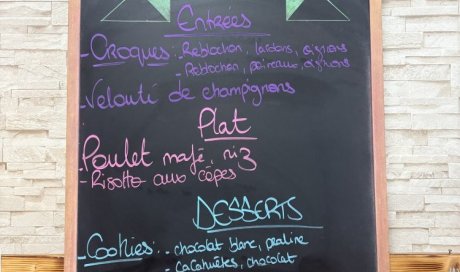 Entrées
- Croques : Reblochon, lardons, oignons
- Reblochon, poireaux, oignons
- Velouté de champignons
Plat
- Poulet mafé, riz
- Risotto aux cèpes
DESSERTS
- Cookies : - chocolat blanc, praline
- cacahuètes, chocolat